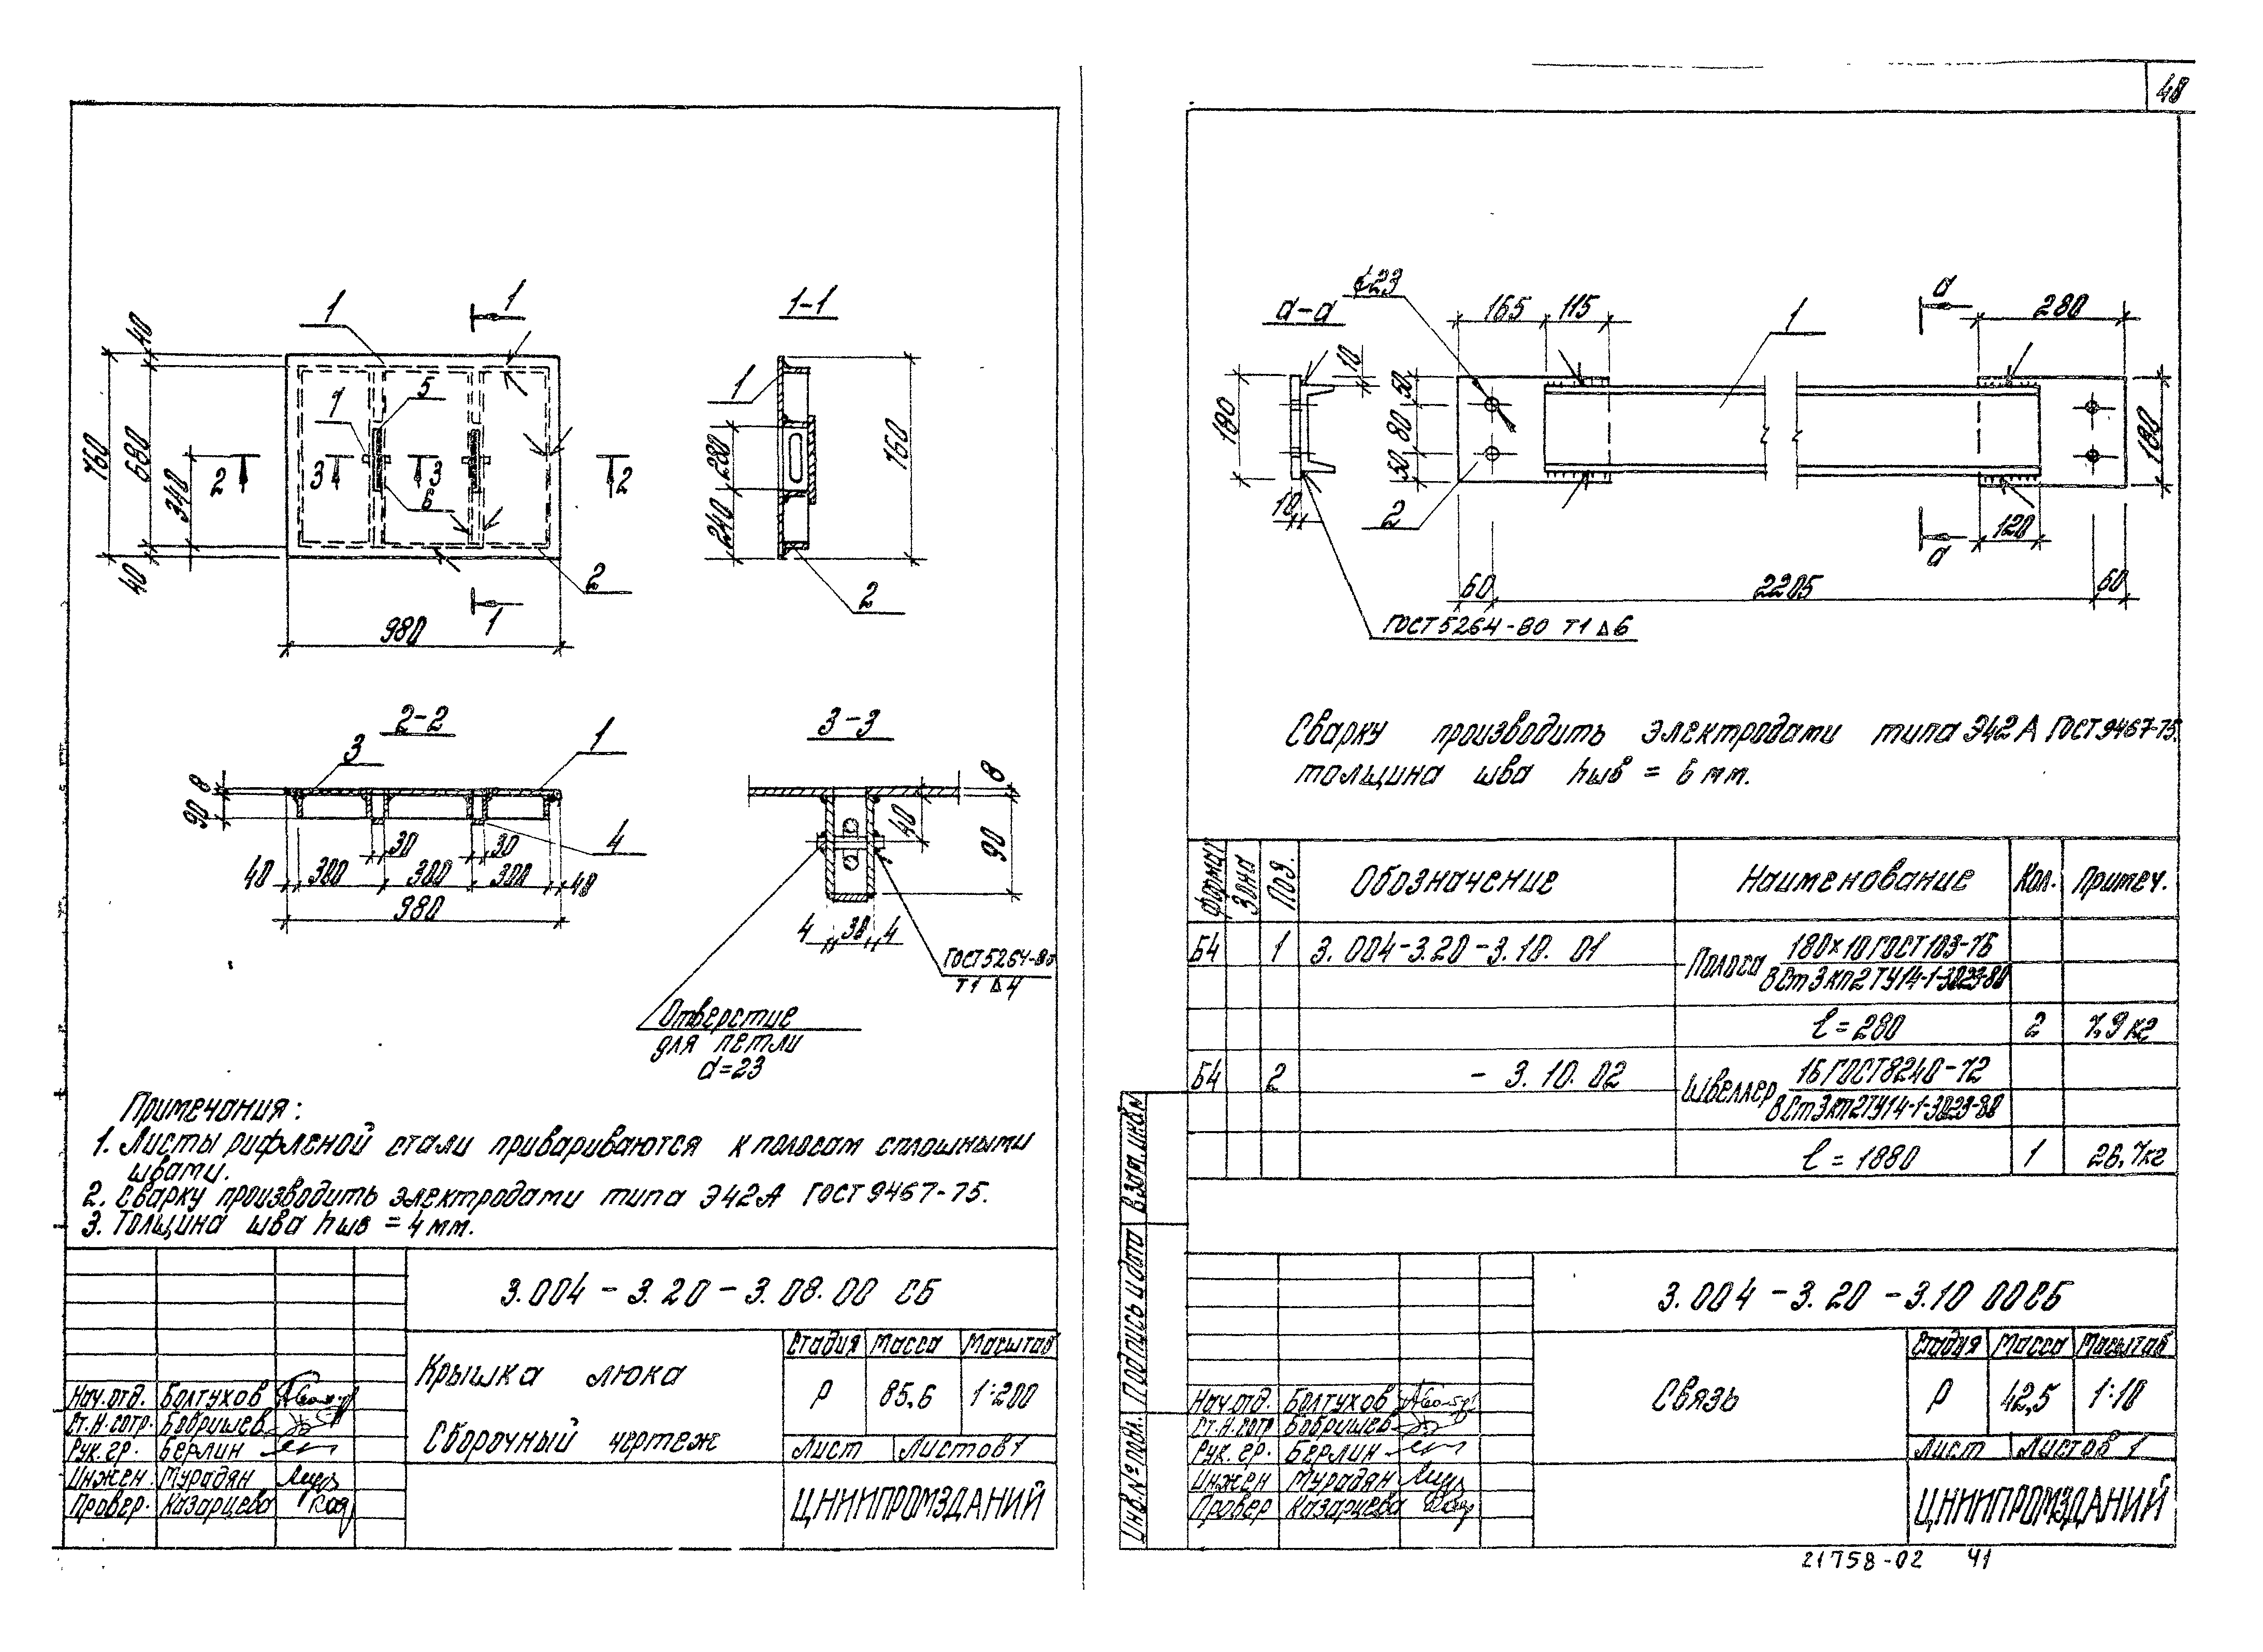 48
1
1
1-1
40
760
680
340
40
1
5
3
3
6
2
2
2
1
980
1
280
240
760
2
2-2
3
1
8
90
30
30
4
40
300
300
300
40
980
3-3
8
40
90
4
30
4
ГОСТ5264-80
Т1 Δ4
Отверстие
для петли
d=23
Примечания:
1. Листы рифленой стали привариваются к полосам сплошными
швами.
2. Сварку производить электродами типа Э42А ГОСТ 9467-75.
3. Толщина шва hшв = 4 мм.
3.004 - 3.20 - 3.08.00 СБ
Крышка люка
Сборочный чертеж
Стадия Масса Масштаб
Р 85,6 1:200
Лист Листов 1
ЦНИИПРОМЗДАНИЙ
Нач.отд. Болтухов
Ст.н.сотр. Бобришев
Рук. гр. Берлин
Инжен. Мурадян
Провер. Казарцева
а-а
⌀23
165
115
1
а
280
10
180
50
80
50
10
2
180
120
а
60
2205
60
ГОСТ 5264-80 Т1 Δ6
Сварку производить электродами типа Э42А ГОСТ 9467-75.
толщина шва hшв = 6 мм.
Формат Зона Поз. Обозначение Наименование Кол. Примеч.
Б4 1 3.004-3.20-3.10.01 Полоса 180×10 ГОСТ 103-76
ВСт3кп2 ТУ14-1-3023-80
ℓ=280 2 7,9 кг
Б4 2 - 3.10.02 Швеллер 16 ГОСТ 8240-72
ВСт3кп2 ТУ14-1-3023-80
ℓ = 1880 1 26,7 кг
Инв.№ подл. Подпись и дата Взам. инв.№
3.004 - 3.20 - 3.10 00СБ
Связь
Стадия Масса Масштаб
Р 42,5 1:10
Лист Листов 1
ЦНИИПРОМЗДАНИЙ
Нач.отд. Болтухов
Ст.н.сотр Бобришев
Рук. гр. Берлин
Инжен Мурадян
Провер Казарцева
21758-02 41